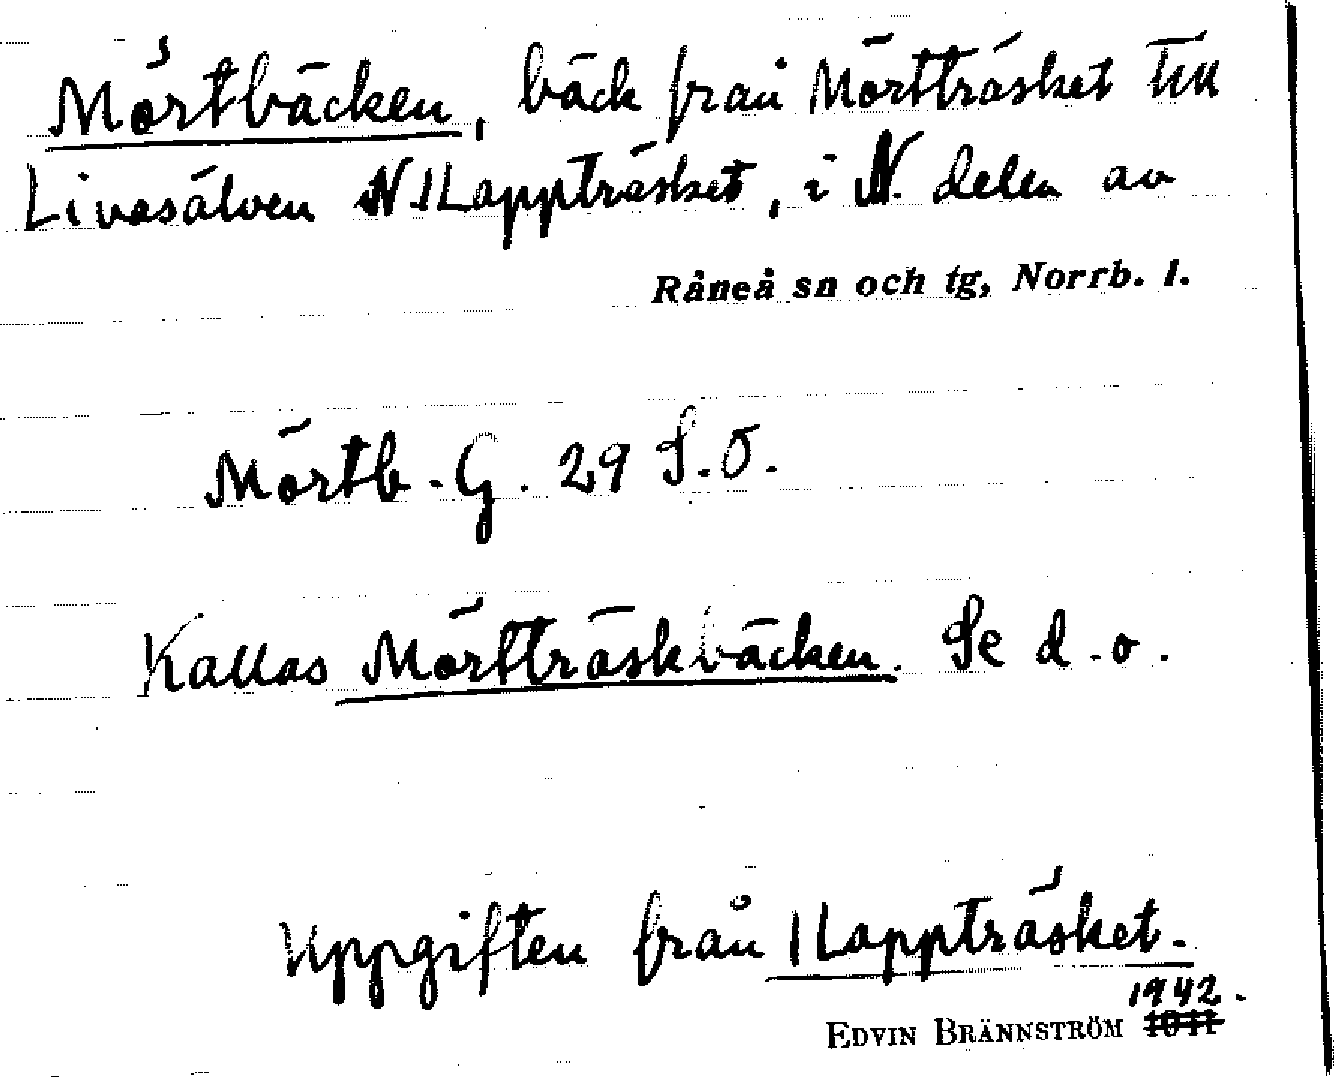 Mörtbäcken, bäck från Mörtträsket till
Livasälven N. 1 Lappträsket, i N. delen av
Råneå sn och tg, Norrb. l.
Mörtb. G. 29 S.O.
Kallas Mörtträskbäcken. Se d. o.
Uppgiften från 1 Lappträsket.
1942.
EDVIN BRÄNNSTRÖM 1941